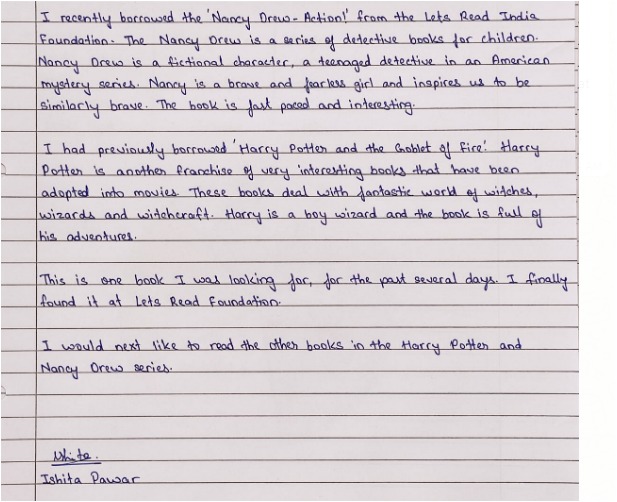 I recently borrowed the 'Nancy Drew - Action!' from the Lets Read India
Foundation. The Nancy Drew is a series of detective books for children.
Nancy Drew is a fictional character, a teenaged detective in an American
mystery series. Nancy is a brave and fearless girl and inspires us to be
similarly brave. The book is fast paced and interesting.
I had previously borrowed 'Harry Potter and the Goblet of Fire'. Harry
Potter is another franchise of very interesting books that have been
adopted into movies. These books deal with fantastic world of witches,
wizards and witchcraft. Harry is a boy wizard and the book is full of
his adventures.
This is one book I was looking for, for the past several days. I finally
found it at Lets Read Foundation.
I would next like to read the other books in the Harry Potter and
Nancy Drew series.
Ishita Pawar